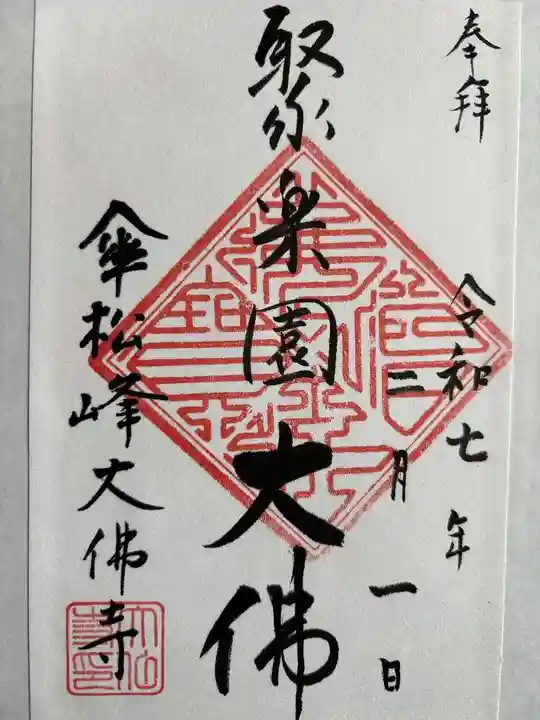 奉拝
令和七年
二月一日
聚楽園大佛
傘松峯大佛寺